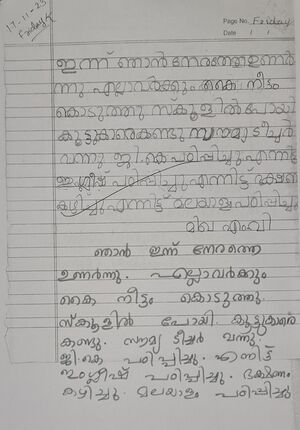 17-11-23
Friday
Page No. Friday
Date / /
ഇന്ന് ഞാൻ നേരത്തേ ഉണർ
ന്നു എല്ലാവർക്കും കൈ നീട്ടം
കൊടുത്തു സ്കൂളിൽ പോയി
കൂട്ടുകാരെകണ്ടു സൗമ്യ ടീച്ചർ
വന്നു ജി.കെ പഠിപ്പിച്ചു എന്നിട്ട്
ഇംഗ്ലീഷ് പഠിപ്പിച്ചു എന്നിട്ട് ഭക്ഷണം
കഴിച്ചു എന്നിട്ട് മലയാളം പഠിപ്പിച്ചു
മിഖ എംവി
ഞാൻ ഇന്ന് നേരത്തെ
ഉണർന്നു. എല്ലാവർക്കും
കൈ നീട്ടം കൊടുത്തു.
സ്കൂളിൽ പോയി. കൂട്ടുകാരെ
കണ്ടു. സൗമ്യ ടീച്ചർ വന്നു.
ജി.കെ പഠിപ്പിച്ചു. എന്നിട്ട്
ഇംഗ്ലീഷ് പഠിപ്പിച്ചു. ഭക്ഷണം
കഴിച്ചു. മലയാളം പഠിപ്പിച്ചു